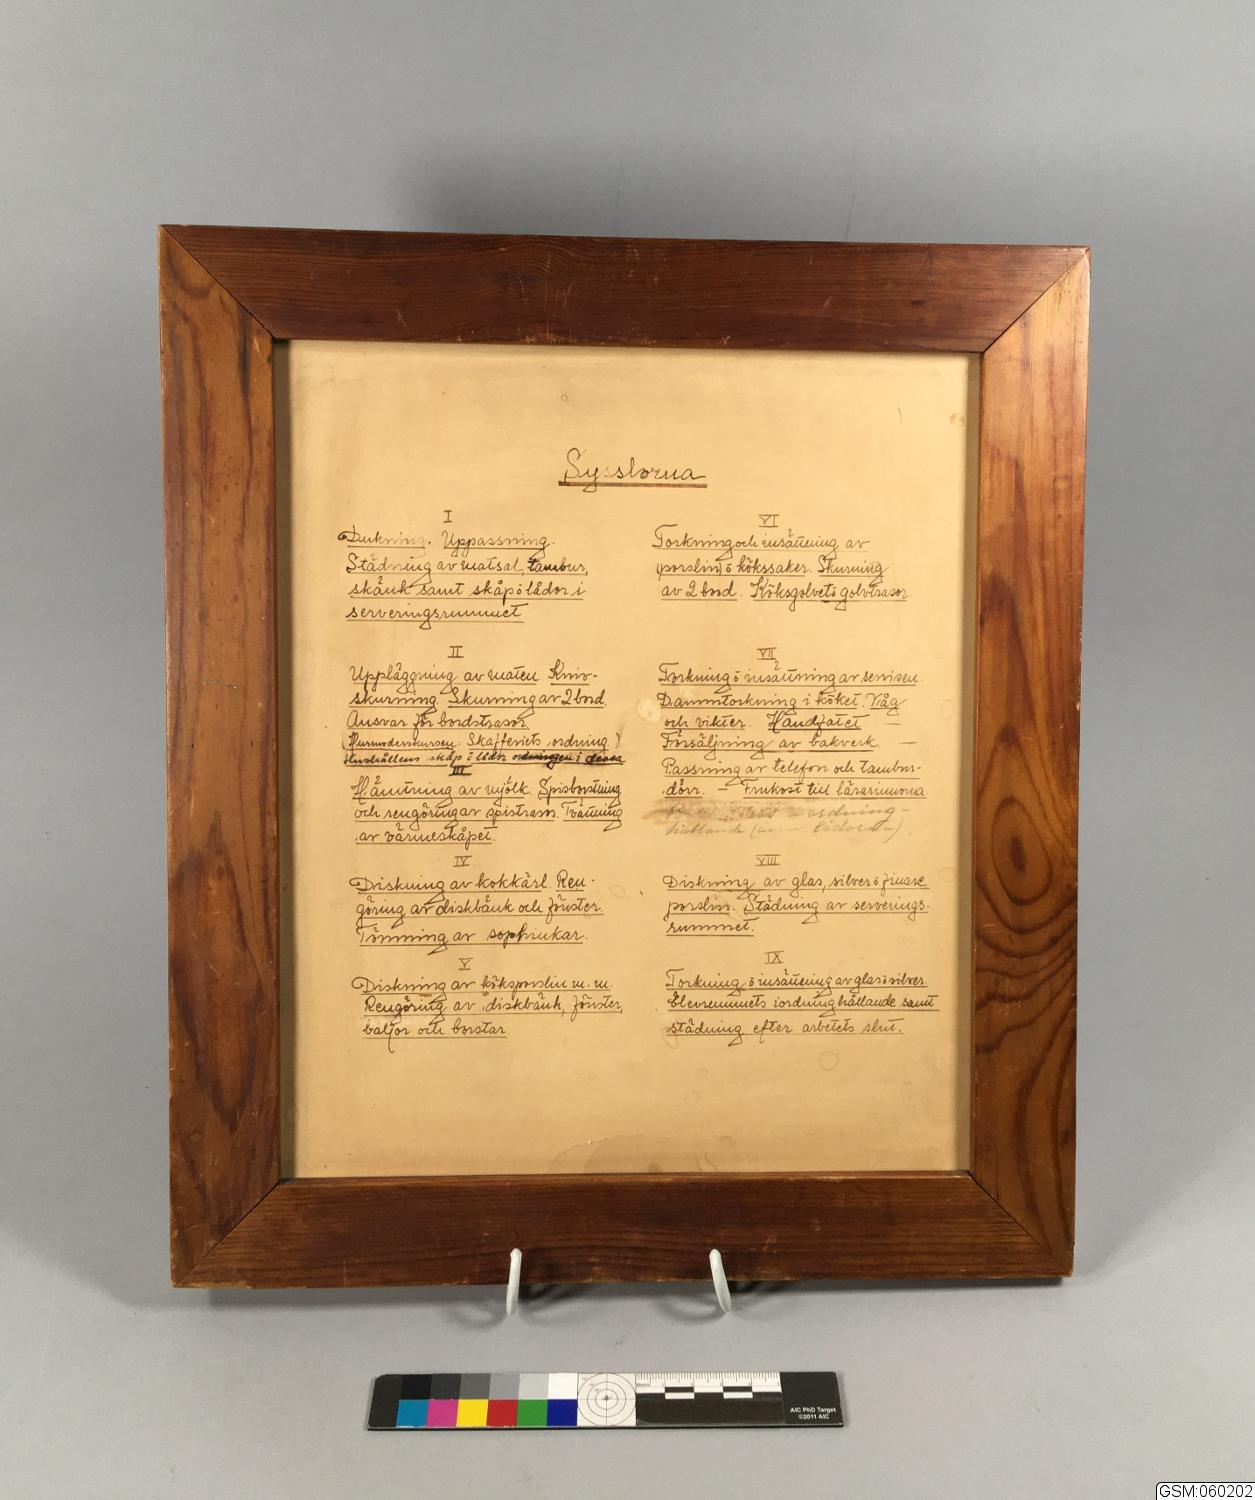 Sysslorna
I
Dukning. Uppassning.
Städning av matsal, tambur,
skänk samt skåp o lådor i
serveringsrummet
II
Uppläggning av maten. Kniv-
skurning. Skurning av 2 bord.
Ansvar för bordstrasor.
(Husmoderskursen: Skafferiets ordning)
Hushållens skåp o lådor ordningen i dessa
III
Hämtning av mjölk. Spisborstning
och rengöring av spistrasor. Tvättning
av värmeskåpet.
IV
Diskning av kokkärl. Ren-
göring av diskbänk och fönster.
Tömning av sophinkar.
V
Diskning av köksporslin m. m.
Rengöring av diskbänk, fönster,
baljor och borstar
VI
Torkning och insättning av
(porslin) o kökssaker. Skurning
av 2 bord. Köksgolvet o golvtrasor.
VII
Torkning o insättning av servisen.
Dammtorkning i köket. Våg
och vikter. Handfatet —
Försäljning av bakverk —
Passning av telefon och tambur-
dörr. — Frukost till lärarinnorna.
ordning-
hållande lådorna)
VIII
Diskning av glas, silver o finare
porslin. Städning av serverings-
rummet.
IX
Torkning o insättning av glas o silver.
Elevrummets iordninghållande samt
städning efter arbetets slut.
AIC PhD Target
©2011 AIC
GSM:060202